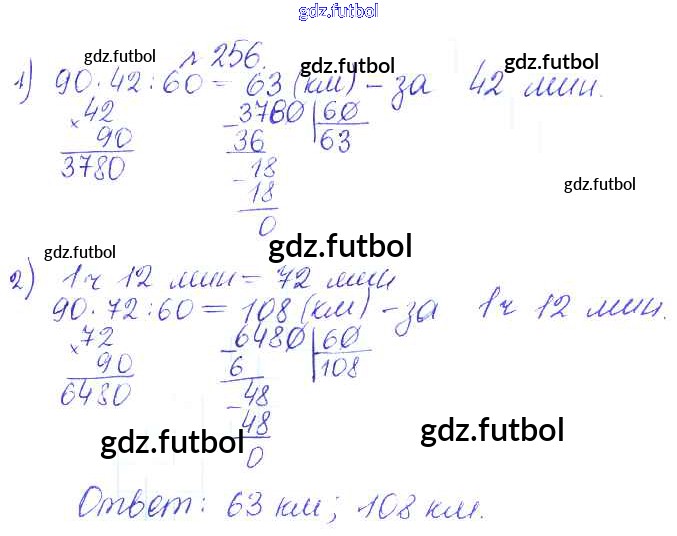 gdz.futbol
gdz.futbol № 256. gdz.futbol gdz.futbol
1) 90 · 42 : 60 = 63 (км) – за 42 мин.
× 42 – 3780 | 60
90 36 63
3780 – 18
18 gdz.futbol
0
gdz.futbol
gdz.futbol
2) 1 ч 12 мин = 72 мин
90 · 72 : 60 = 108 (км) – за 1 ч 12 мин.
× 72 – 6480 | 60
90 6 108
6480 – 48
48
gdz.futbol gdz.futbol
0
Ответ: 63 км; 108 км.